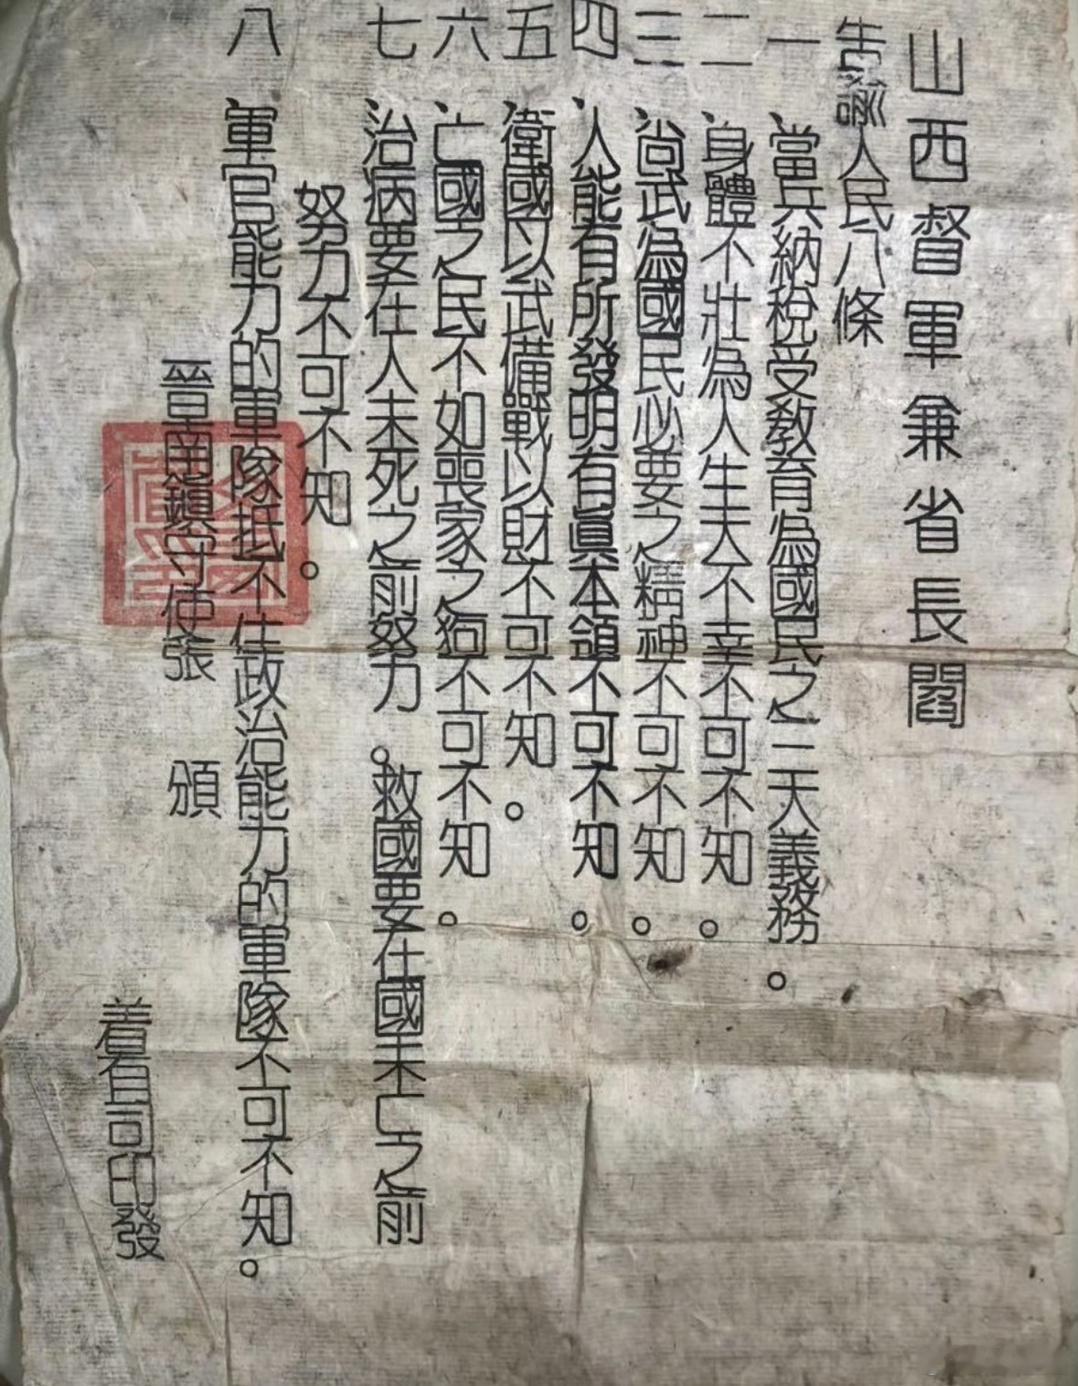 山西督軍兼省長閻
告諭人民八條
一、當兵納稅受教育為國民之三大義務。
二、身體不壯為人生大不幸不可不知。
三、尚武為國民必要之精神不可不知。
四、人能有所發明有真本領不可不知。
五、衛國以武備戰以財不可不知。
六、亡國之民不如喪家之狗不可不知。
七、治病要在人未死之前努力。救國要在國未亡之前
努力不可不知。
八、軍官能力的軍隊抵不住政治能力的軍隊不可不知。
晉南鎮守使張 頒
着有司印發